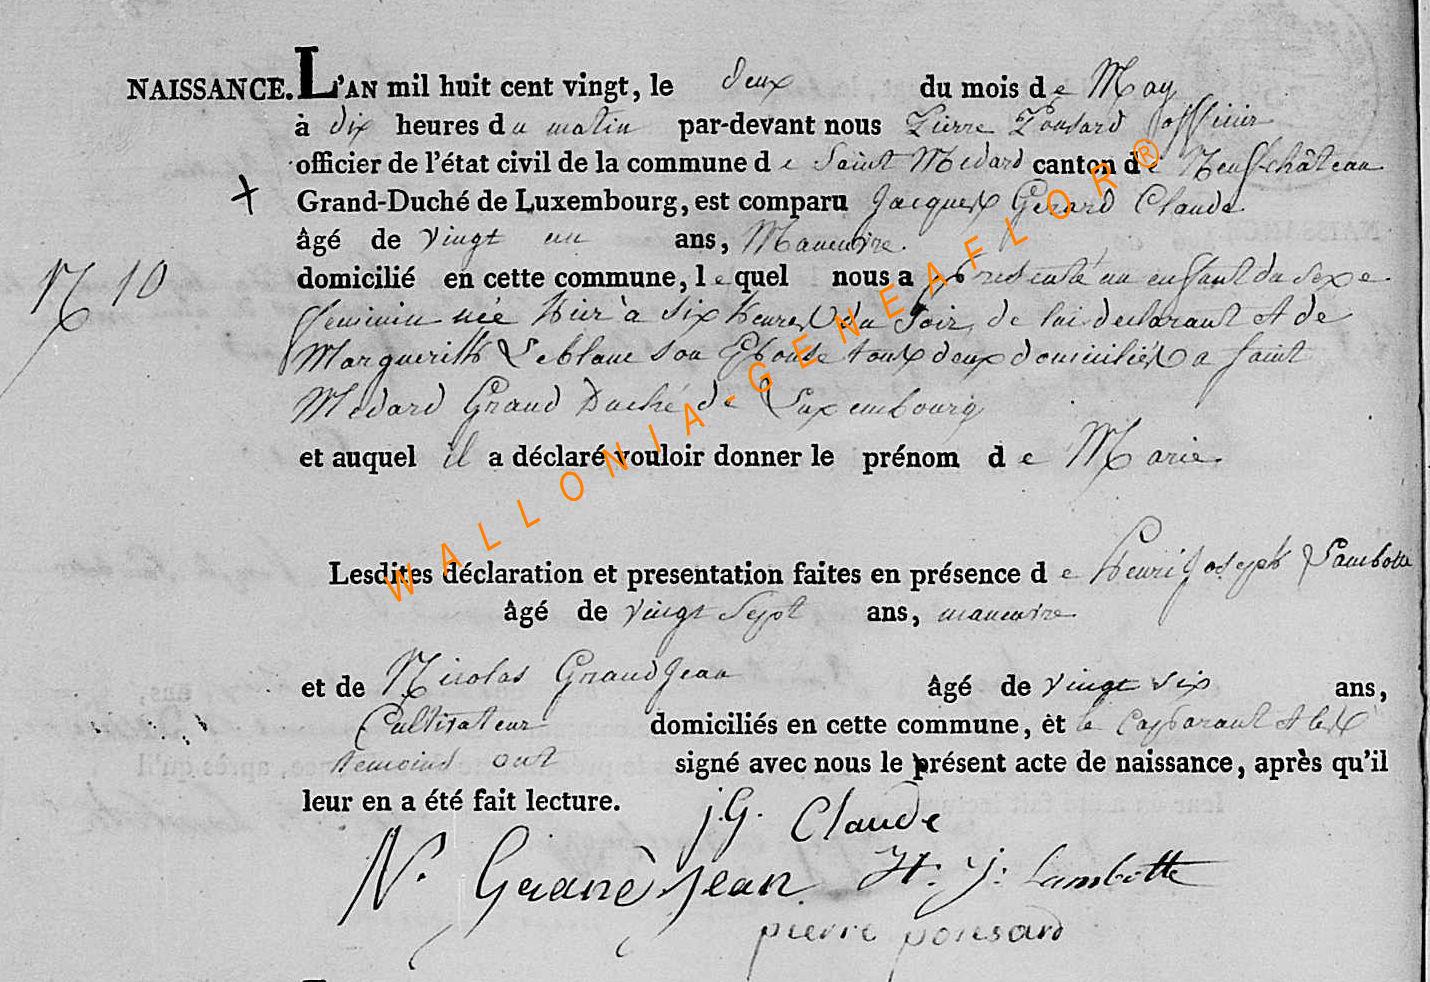 NAISSANCE. L'AN mil huit cent vingt, le deux du mois de May
à dix heures du matin par-devant nous Pierre Ponsard officier
officier de l'état civil de la commune de Saint Medard canton de Neufchâteau
Grand-Duché de Luxembourg, est comparu Jacques Gerard Claude
âgé de vingt un ans, Manœuvre.
domicilié en cette commune, lequel nous a presenté un enfant du sexe
N 10
feminin née hier à six heures du soir, de lui declarant et de
Margueritte Leblanc son Epouse tous deux domiciliés a saint
Medard Grand Duché de Luxembourg
et auquel il a déclaré vouloir donner le prénom de Marie.
WALLONIA-GENEAFLOR®
Lesdites déclaration et presentation faites en présence de Henri Joseph Lambotte
âgé de vingt sept ans, manœuvre
et de Nicolas Grandjean âgé de vingt six ans,
Cultivateur domiciliés en cette commune, et le Comparant et les
temoins ont signé avec nous le présent acte de naissance, après qu'il
leur en a été fait lecture.
j.G. Claude
N. Grandjean H. J. Lambotte
pierre ponsard